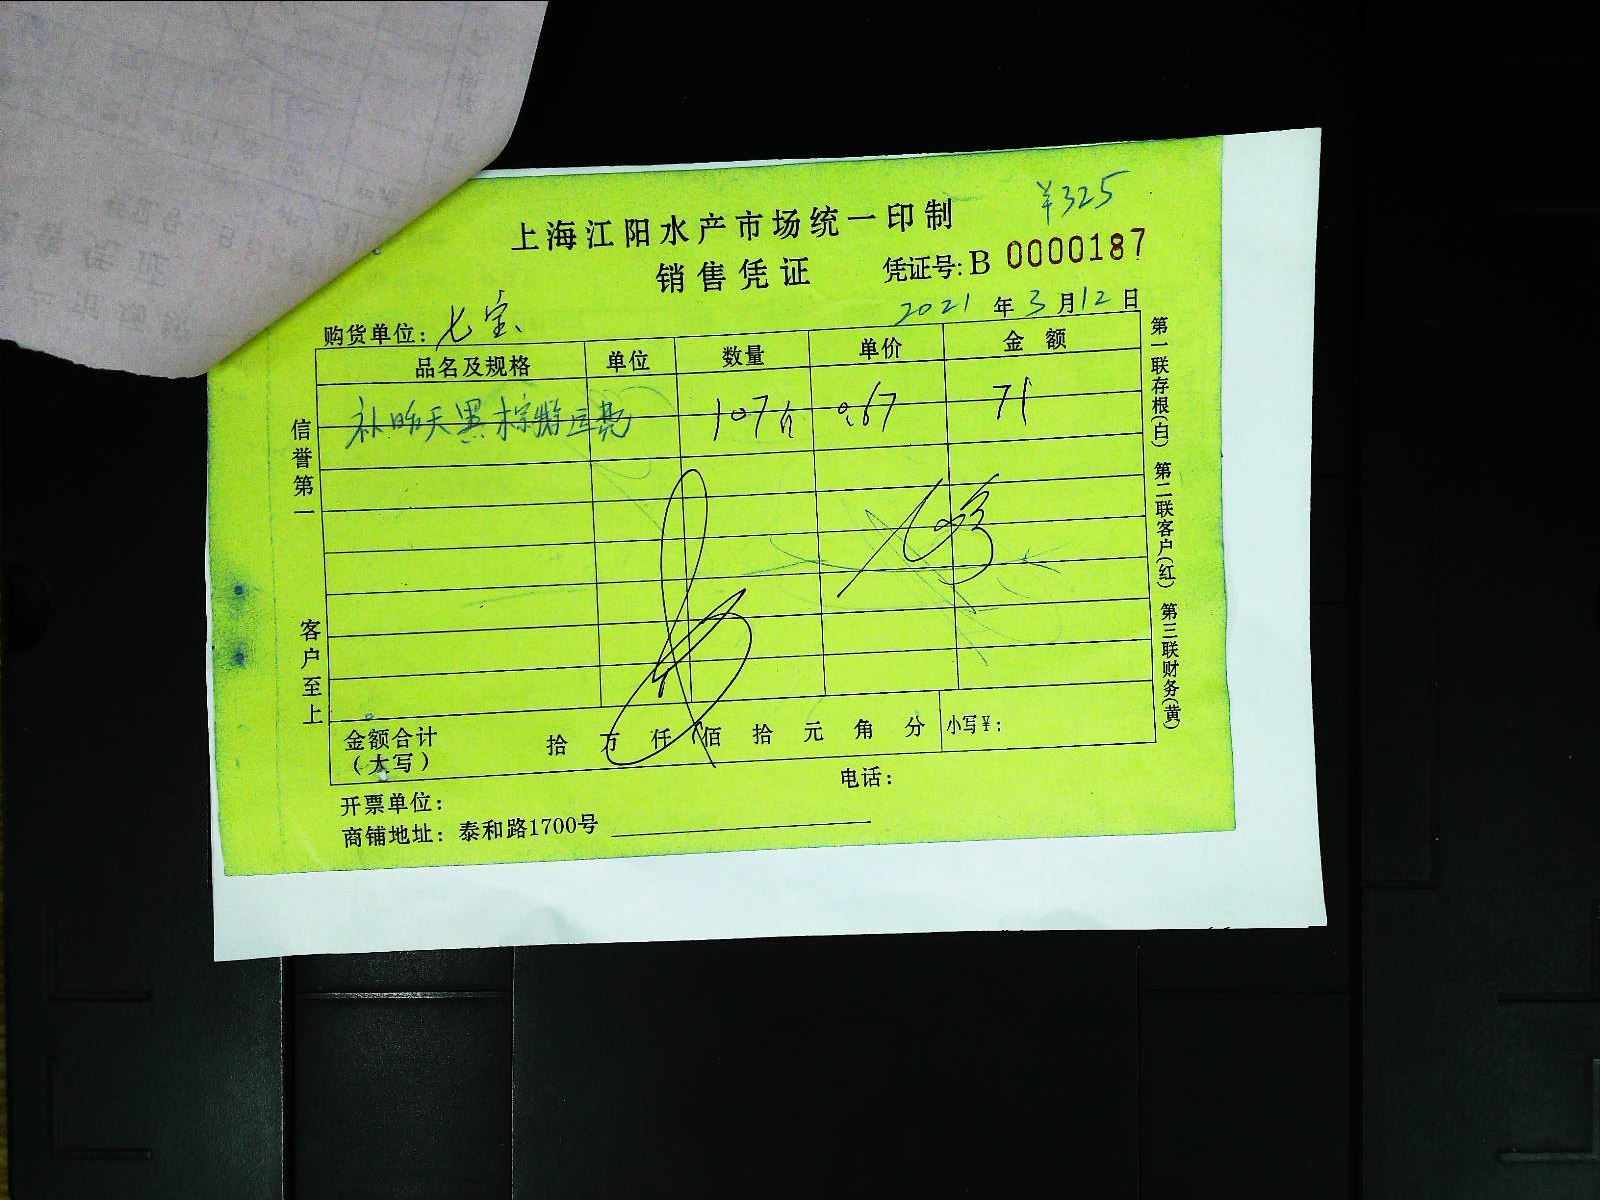 ¥325
上海江阳水产市场统一印制
销售凭证 凭证号:B 0000187
2021年3月12日
购货单位:七宝
品名及规格 单位 数量 单价 金额
补昨天黑棕 运费 107斤 0.67 71
信誉第一
客户至上
第一联存根(白) 第二联客户(红) 第三联财务(黄)
金额合计 拾 万 仟 佰 拾 元 角 分 小写¥:
(大写)
电话:
开票单位:
商铺地址: 泰和路1700号